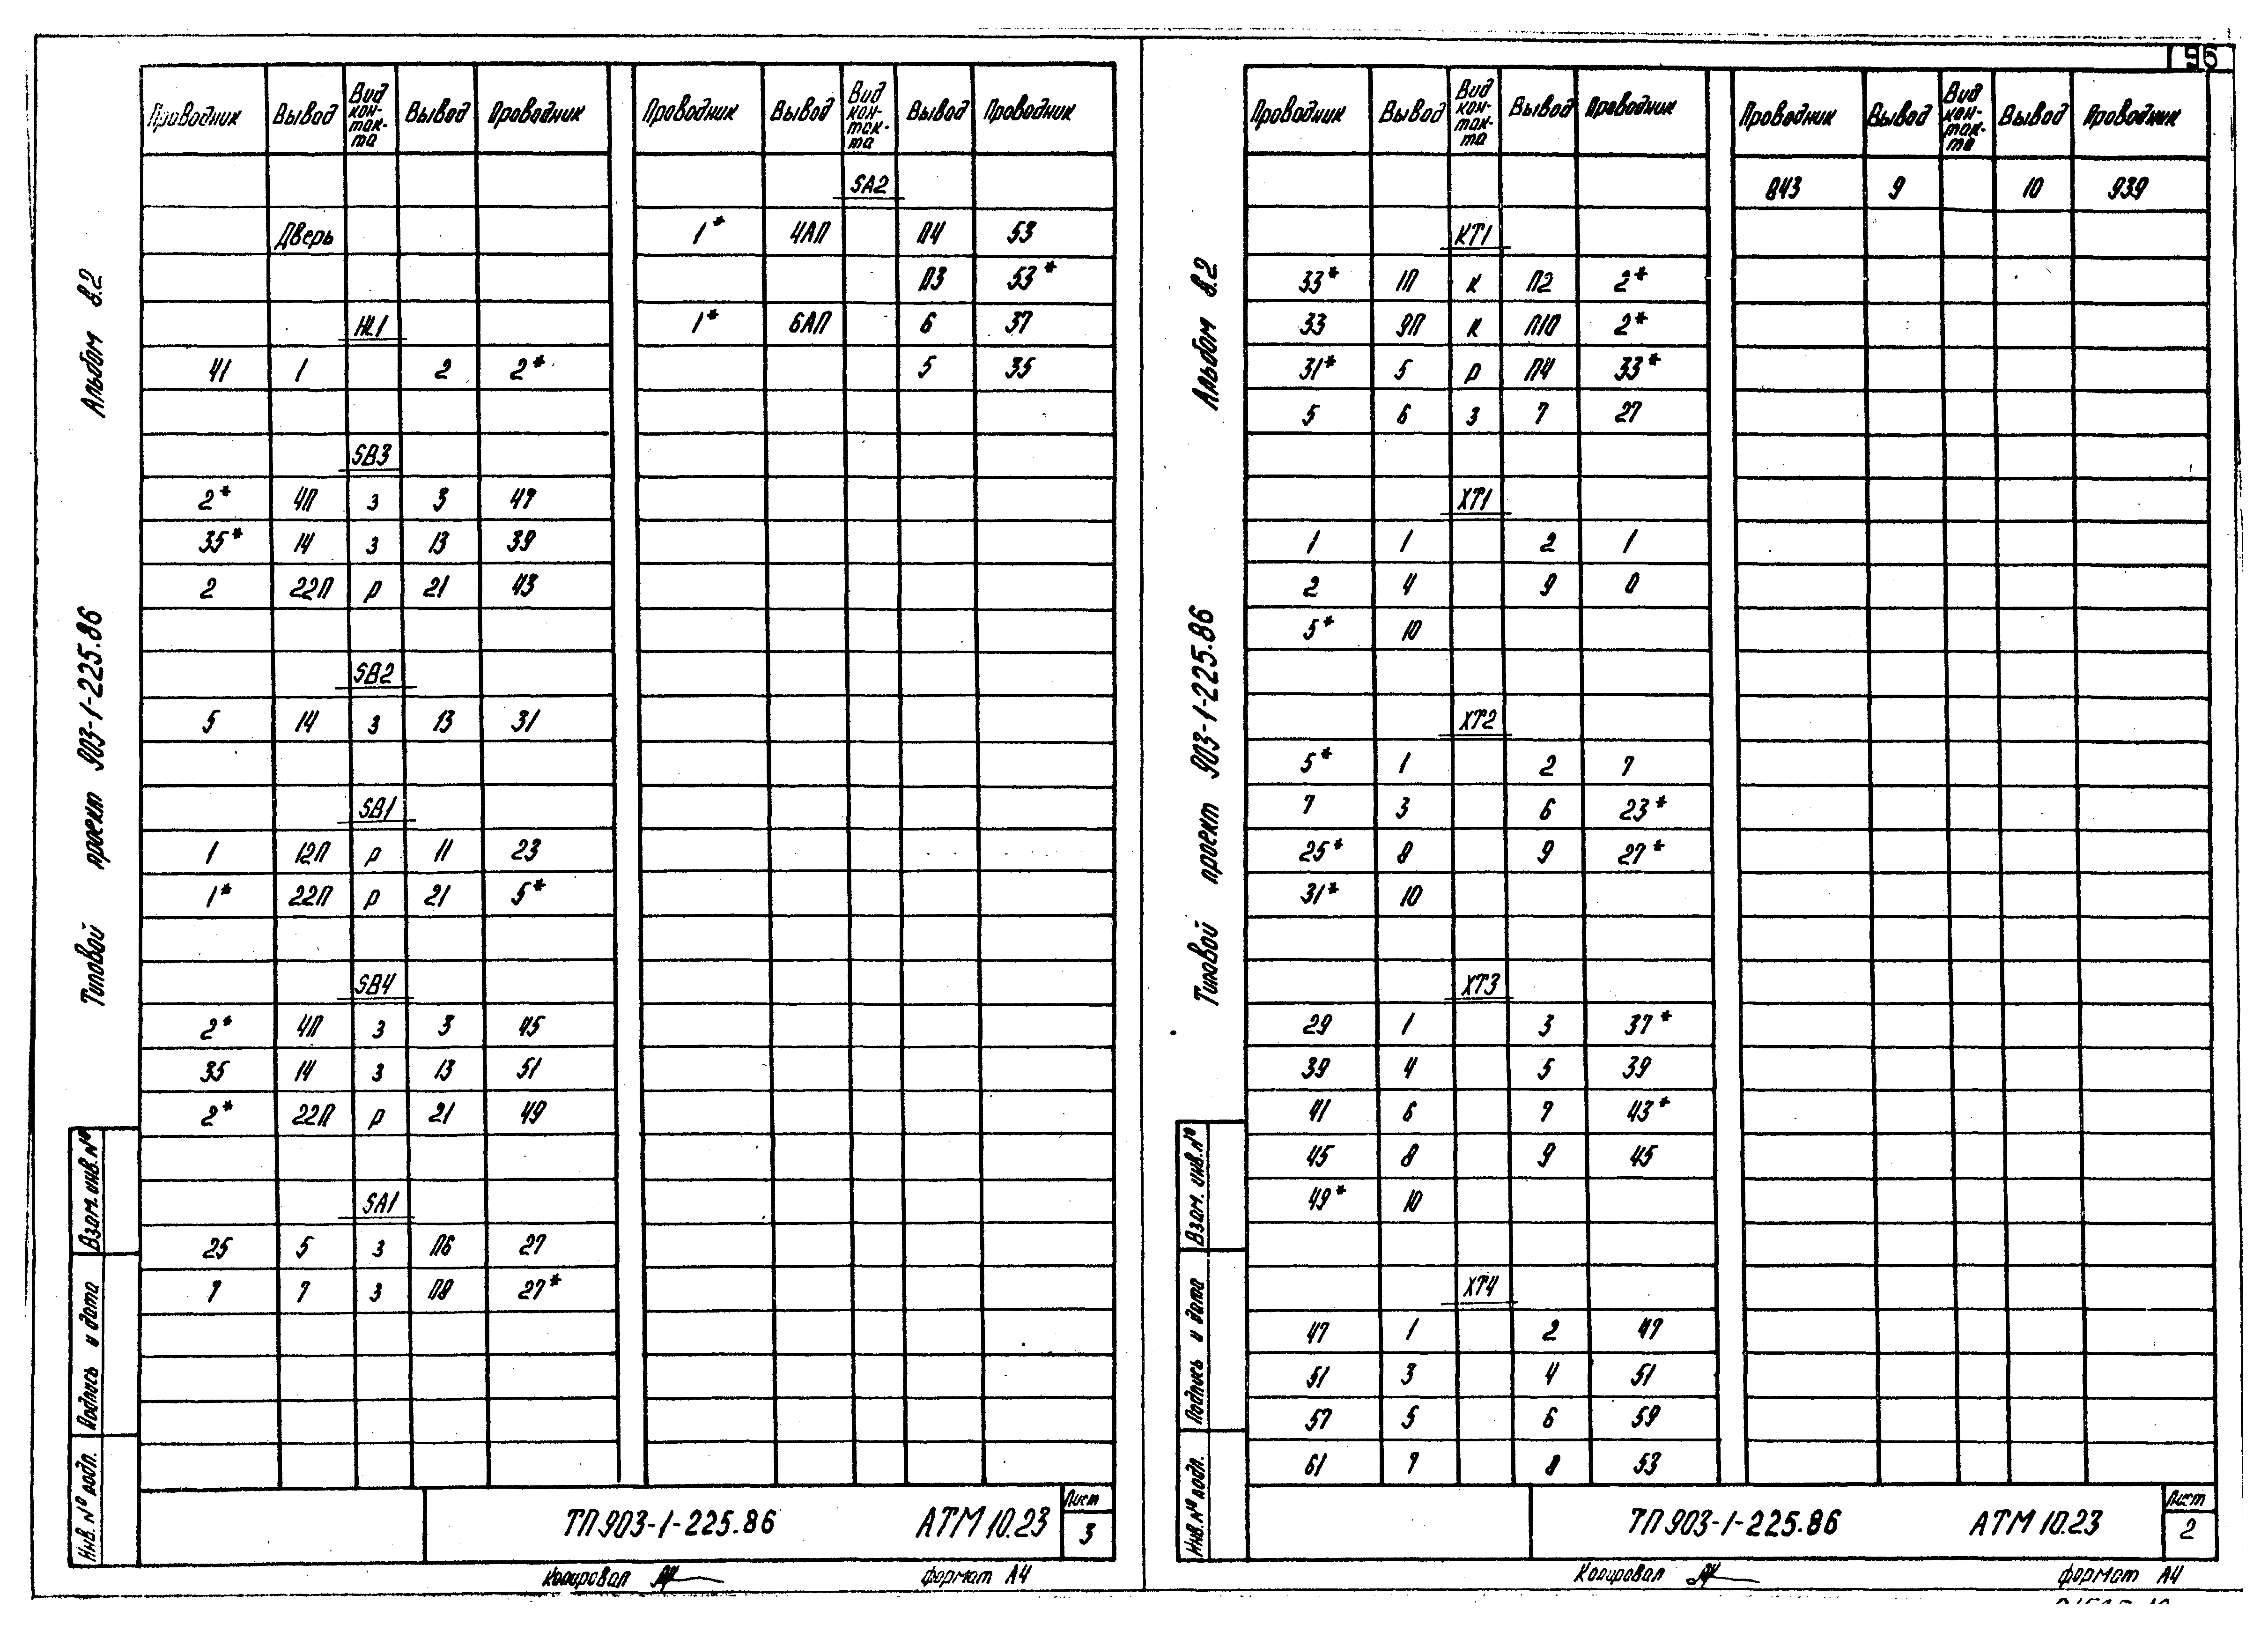 96
Альбом 8.2
Типовой проект 903-1-225.86
Взам. инв. №
Подпись и дата
Инв. № подл.
Проводник Вывод Вид контакта Вывод Проводник
Дверь
HL1
41 1 2 2*
SB3
2* 4П з 3 47
35* 14 з 13 39
2 22П р 21 43
SB2
5 14 з 13 31
SB1
1 12П р 11 23
1* 22П р 21 5*
SB4
2* 4П з 3 45
35 14 з 13 51
2* 22П р 21 49
SA1
25 5 з П6 27
7 7 з П8 27*
Проводник Вывод Вид кон-так-та Вывод Проводник
SA2
1* 4АП П4 53
П3 53*
1* 6АП 6 37
5 35
ТП 903-1-225.86 АТМ 10.23
Лист
3
Копировал
Формат А4
Альбом 8.2
Типовой проект 903-1-225.86
Взам. инв. №
Подпись и дата
Инв. № подл.
Проводник Вывод Вид кон-так-та Вывод Проводник
KT1
33* 1П к П2 2*
33 9П к П10 2*
31* 5 р П4 33*
5 6 з 7 27
XT1
1 1 2 1
2 4 9 0
5* 10
XT2
5* 1 2 7
7 3 6 23*
25* 8 9 27*
31* 10
XT3
29 1 3 37*
39 4 5 39
41 6 7 43*
45 8 9 45
49* 10
XT4
47 1 2 47
51 3 4 51
57 5 6 59
61 7 8 53
Проводник Вывод Вид кон-так-та Вывод Проводник
843 9 10 939
ТП 903-1-225.86 АТМ 10.23
Лист
2
Копировал
Формат А4